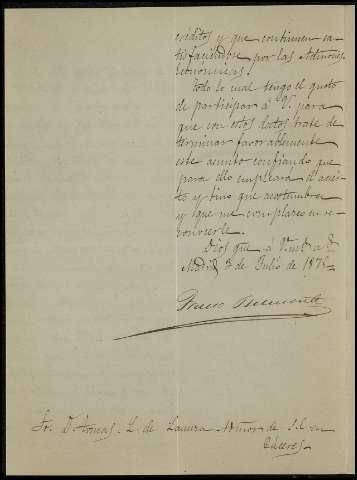 créditos y que continuen sa-
tisfaciendose por las Admones
Económicas.
Todo lo cual tengo el gusto
de participar á V. para
que con estos datos trate de
terminar favorablemente
este asunto confiando que
para ello empleará el acier-
to y tino que acostumbra
y que me complazco en re-
conocerle.
Dios gue. á V. m. a.
Madrid 3 de Julio de 187
Sr. D. Tomas L. de Admor de
Cáceres